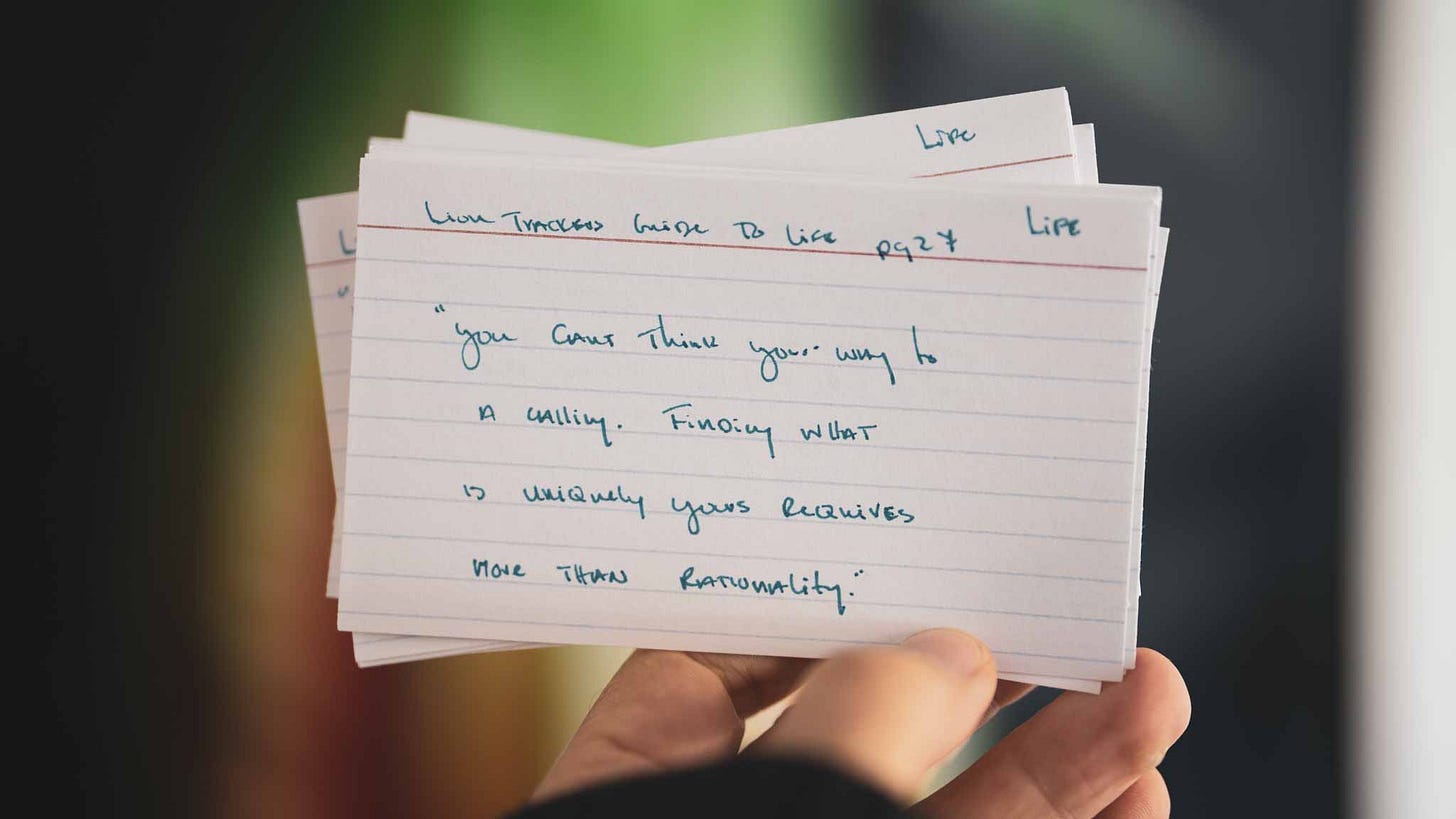 Life
Lion Trackers Guide To Life pg 27
Life
"you cant Think your way to
A calling. Finding what
is uniquely yours Requires
more than Rationality."